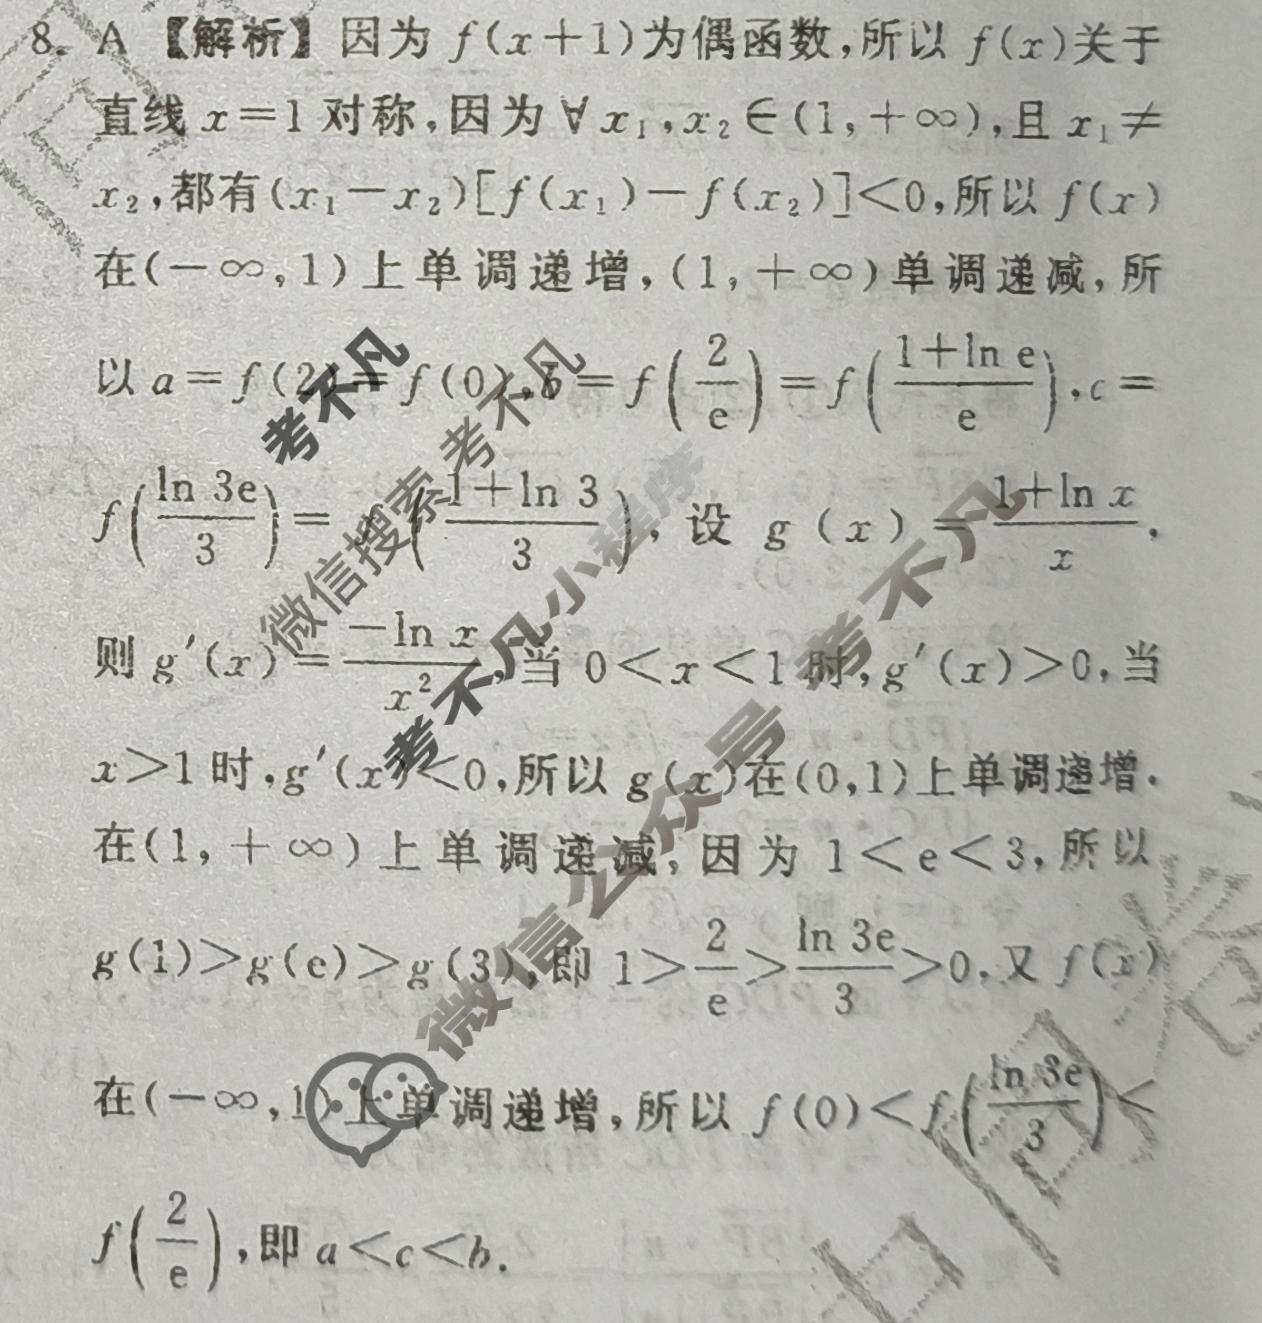 8. A 【解析】因为 f(x+1)为偶函数,所以 f(x)关于
直线 x=1 对称,因为 ∀ x₁,x₂∈(1,+∞),且 x₁≠
x₂,都有(x₁-x₂)[f(x₁)-f(x₂)]<0,所以 f(x)
在(-∞,1)上单调递增,(1,+∞)单调递减,所
以 a=f(2)=f(0),b=f(2/e)=f((1+ln e)/e),c=
f(ln 3e/3)=f((1+ln 3)/3),设 g(x)=(1+ln x)/x,
则 g′(x)=(-ln x)/x²,当 0<x<1 时,g′(x)>0,当
x>1 时,g′(x)<0,所以 g(x)在(0,1)上单调递增,
在(1,+∞)上单调递减,因为 1<e<3,所以
g(1)>g(e)>g(3),即 1>2/e>ln 3e/3>0,又 f(x)
在(-∞,1)上单调递增,所以 f(0)<f(ln 3e/3)<
f(2/e),即 a<c<b.
考不凡
微信搜索 考不凡
考不凡小程序
微信公众号 考不凡